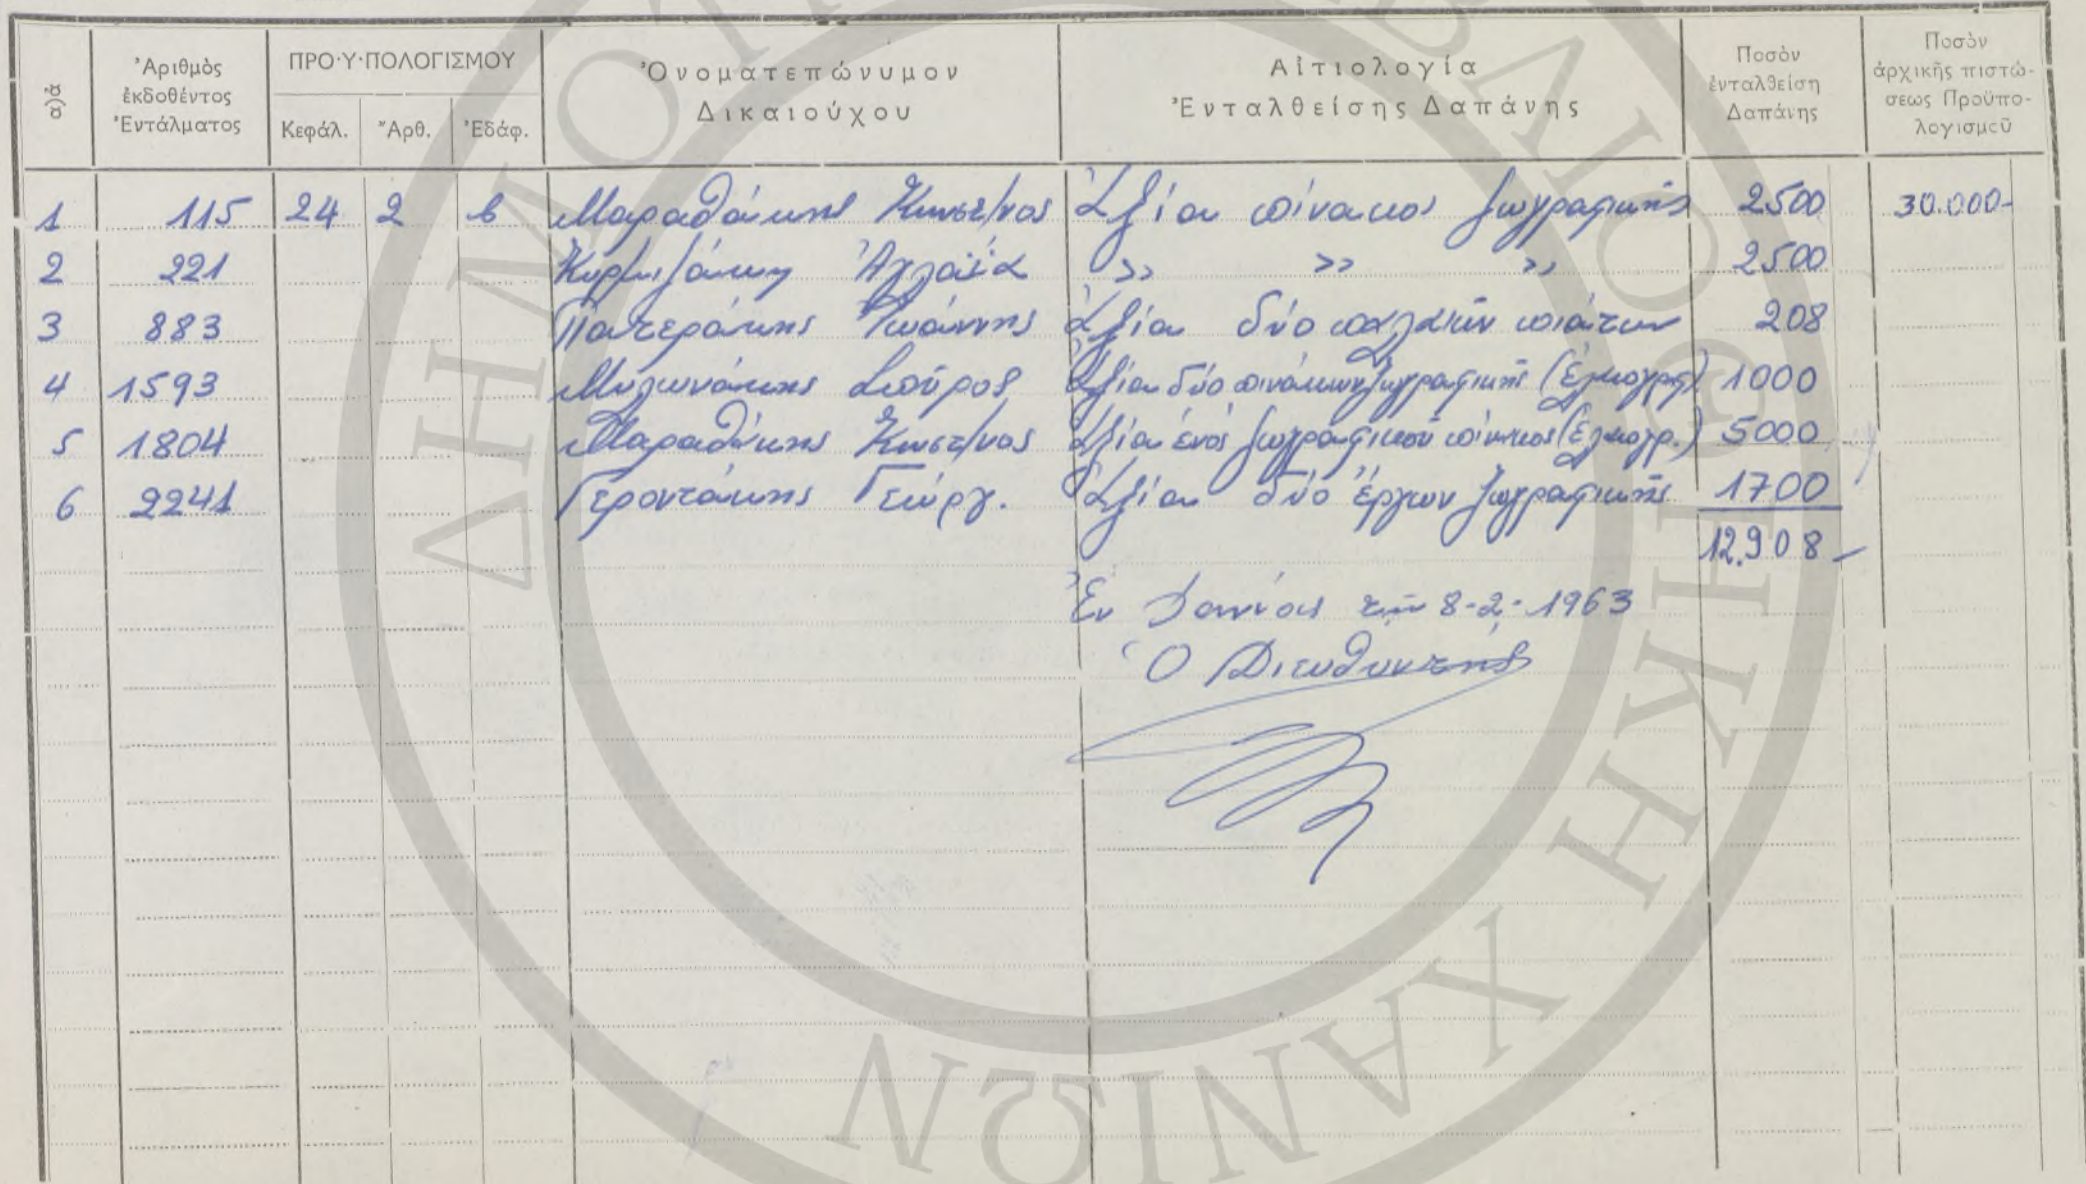 α)α
Ἀριθμὸς ἐκδοθέντος Ἐντάλματος
ΠΡΟ·Υ·ΠΟΛΟΓΙΣΜΟΥ
Κεφάλ. Ἄρθ. Ἐδάφ.
Ὀνοματεπώνυμον Δικαιούχου
Αἰτιολογία Ἐνταλθείσης Δαπάνης
Ποσὸν ἐνταλθείση Δαπάνης
Ποσὸν ἀρχικῆς πιστώ- σεως Προϋπο- λογισμοῦ
1 115 24 2 β Μαραθάκης Κωνστ/νος Ἀξία πίνακος ζωγραφικῆς 2500 30.000-
2 221 Ἀγλαΐα » » » 2500
3 883 Πατεράκης Ἰωάννης Ἀξία δύο παλαιῶν πιάτων 208
4 1593 Μυλωνάκης Σπῦρος Ἀξία δύο πινάκων ζωγραφικῆς (Ἐλαιογρφ) 1000
5 1804 Μαραθάκης Κωνστ/νος Ἀξία ἑνὸς ζωγραφικοῦ πίνακος (Ἐλαιογρ.) 5000
6 2241 Γεροντάκης Γεώργ. Ἀξία δύο ἔργων ζωγραφικῆς 1700
12.908-
Ἐν Χανίοις τῇ 8-2-1963
Ὁ Διευθυντὴς
ΔΗΜΟΤΙΚΗ ΒΙΒΛΙΟΘΗΚΗ ΧΑΝΙΩΝ